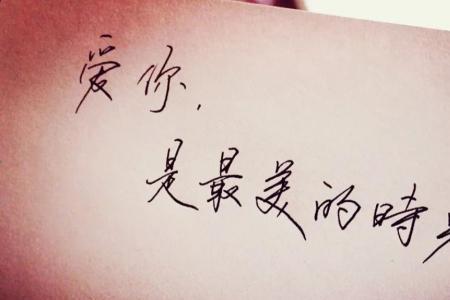 爱你,
是最美的時